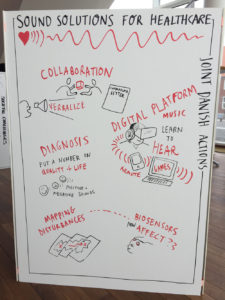 SOUND SOLUTIONS FOR HEALTHCARE
JOINT DANISH ACTIONS
COLLABORATION
VERBALIZE
DIGITAL PLATFORM
MUSIC
LEARN
TO
HEAR
REMOTE
GAMES
DIAGNOSIS
PUT A NUMBER ON
QUALITY + LIFE
POSITIVE +
NEGATIVE SOUNDS
MAPPING
DISTURBANCES
BIOSENSORS
AFFECT?